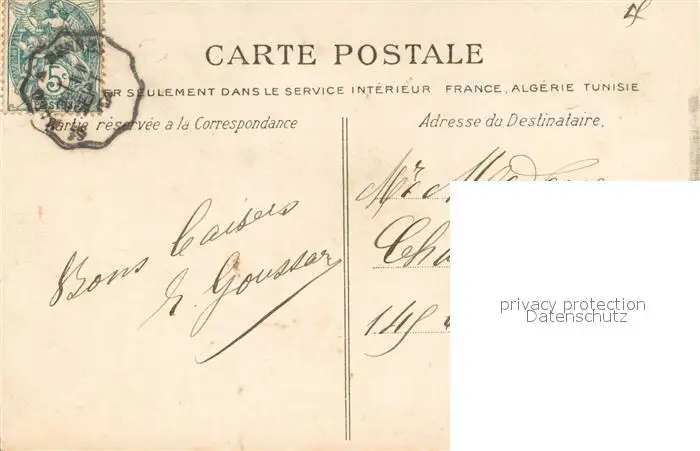 5c
POSTES
CARTE POSTALE
ER SEULEMENT DANS LE SERVICE INTÉRIEUR FRANCE, ALGÉRIE TUNISIE
Partie réservée a la Correspondance
Adresse du Destinataire.
Bons baisers
E. Goussar
Mr
Cha
145
privacy protection
Datenschutz